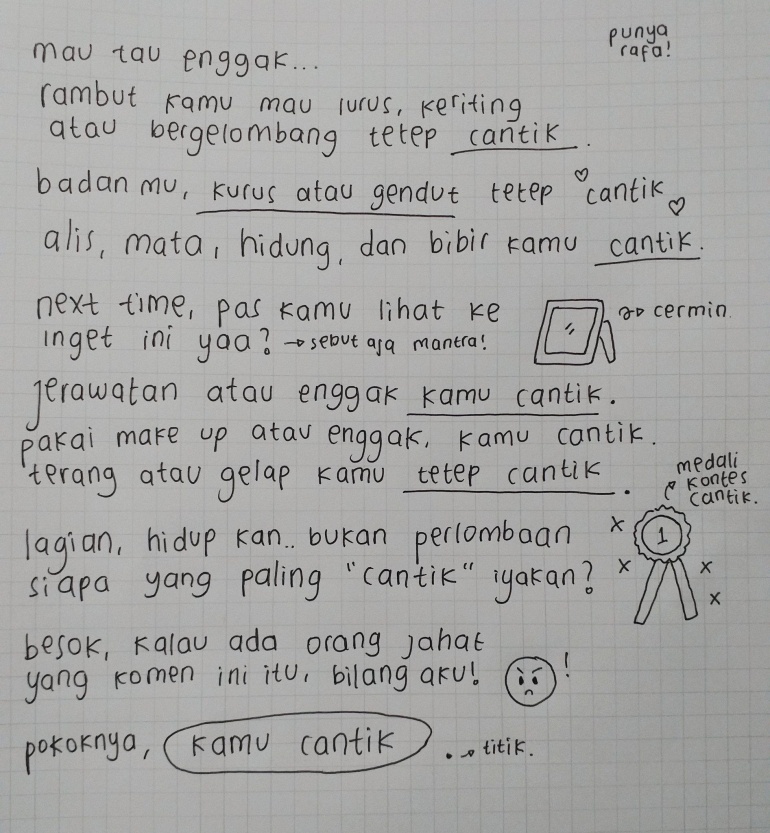 punya
rafa!
mau tau enggak...
rambut kamu mau lurus, keriting
atau bergelombang tetep cantik.
badan mu, kurus atau gendut tetep cantik
alis, mata, hidung, dan bibir kamu cantik.
next time, pas kamu lihat ke
→ cermin.
inget ini yaa? → sebut aja mantra!
jerawatan atau enggak kamu cantik.
pakai make up atau enggak, kamu cantik.
terang atau gelap kamu tetep cantik.
medali
kontes
cantik.
1
lagian, hidup kan.. bukan perlombaan
siapa yang paling "cantik" iyakan?
besok, kalau ada orang jahat
yang komen ini itu, bilang aku! !
pokoknya, kamu cantik . → titik.